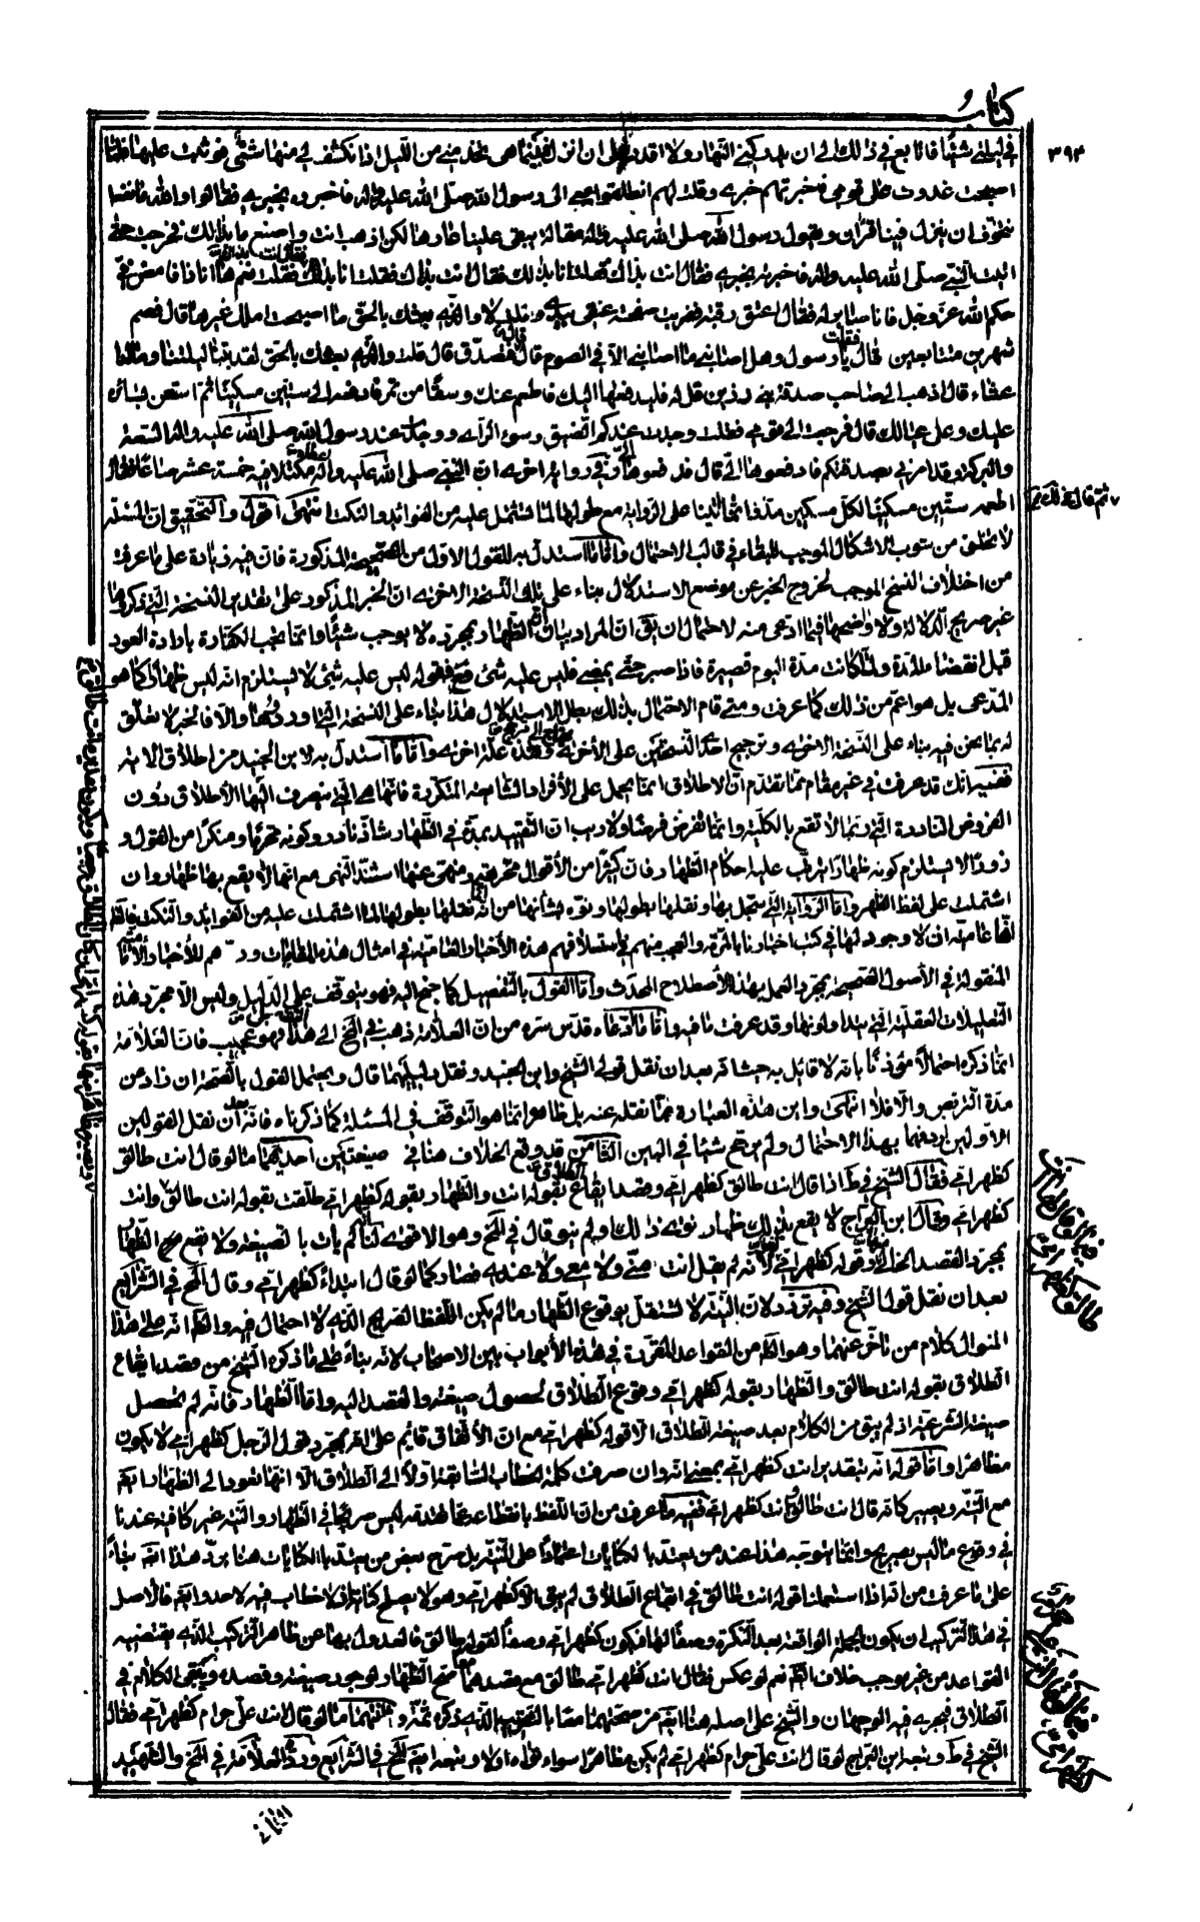 كتاب
٣٩٤
في ليلتي شيئا فاتابع في ذلك الى ان يدركني النهار ولا اقدر على ان انزع فبينما هي تخدمني من الليل اذ انكشف لي منها شئ فوثبت عليها فلما
اصبحت غدوت على قومي فاخبرتهم خبري وقلت لهم انطلقوا معي الى رسول الله صلى الله عليه واله فاخبروه بخبري فقالوا والله
نتخوف ان ينزل فينا قران ويقول رسول الله صلى الله عليه واله مقالة يبقى علينا عارها لكن اذهب انت واصنع ما بدا لك فخرجت حتى
اتيت النبي صلى الله عليه واله فاخبرته بخبري فقال انت بذاك فقلت انا بذلك فقال انت بذاك فقلت انا بذلك فقلت نعم ها انا ذا فامض في
حكم الله عز وجل فانا صابر له فقال اعتق رقبة فضربت صفحة عنقي بيدي وقلت لا والذي بعثك بالحق ما اصبحت املك غيرها قال فصم
شهرين متتابعين فقلت يا رسول وهل اصابني ما اصابني الا في الصوم قال فتصدق قال قلت والذي بعثك بالحق لقد بتنا ليلتنا وما لنا
عشاء قال اذهب الى صاحب صدقة بني زريق قل له فليدفعها اليك فاطعم عنك وسقا من تمر ستين مسكينا ثم استعن بسائره
عليك وعلى عيالك قال فرجعت الى قومي فقلت وجدت عندكم الضيق وسوء الراي ووجدت عند رسول الله صلى الله عليه واله السعة
والبركة وقد امر لي بصدقتكم فادفعوها الي قال فدفعوها الي وفي رواية اخرى ان النبي صلى الله عليه واله اعطاه مكتلا فيه خمسة عشر صاعا فقال
اطعمه ستين مسكينا لكل مسكين مد وانما اتينا على الرواية مع طولها لما اشتمل عليه من الفوائد والنكت انتهى اقول والتحقيق ان المسئلة
لا تخلو من شوب الاشكال الموجب للبقاء في قالب الاحتمال واما ما استدل به للقول الاول من الصحيحة المذكورة فان فيه زيادة على ما عرفت
من اختلاف النسخ الموجب لخروج الخبر عن موضع الاستدلال بناء على تلك النسخة الاخرى ان الخبر المذكور على تقدير النسخة التي ذكروها
غير صريح الدلالة ولا واضحها فيما ادعى منه لاحتمال ان يق ان المراد بيان ان الظهار بمجرده لا يوجب شيئا وانما تجب الكفارة بارادة العود
قبل انقضاء المدة ولما كانت مدة اليوم قصيرة فاذا صبر حتى يمضي فليس عليه شئ فقوله ليس عليه شئ لا يستلزم انه ليس ظهارا كما هو
المدعى بل هو اعم من ذلك كما عرفت ومتى قام الاحتمال بذلك بطل الاستدلال هذا بناء على النسخة التي اوردوها والا فالخبر لا تعلق
له بما نحن فيه بناء على النسخة الاخرى وترجيح احدى النسختين على الاخرى يحتاج الى مرجح وهذه علة اخرى واما ما استدل به لابن الجنيد من اطلاق الاية
ففيه انك قد عرفت في غير مقام مما تقدم ان الاطلاق انما يحمل على الافراد الشايعة المتكررة فانها هي التي ينصرف اليها الاطلاق دون
الفروض النادرة التي ربما لا تقع بالكلية وانما تفرض فرضا ولا ريب ان التقييد بمدة في الظهار شاذ نادر وكونه محرما ومنكرا من القول و
زورا لا يستلزم كونه ظهارا يترتب عليه احكام الظهار فان كثيرا من الاقوال محرمة ومنهي عنها اشد النهي مع انها لا يقع بها ظهار وان
اشتملت على لفظ الظهر واما الرواية التي تجمل بها ونقلها بطولها ونوه بشأنها من انه نقلها بطولها لما اشتملت عليه من الفوائد والنكت ففيه
انها عامية اذ لا وجود لها في كتب اخبارنا بالمرة والعجب منهم في استسلافهم هذه الاخبار العامية في امثال هذه المطالب وردهم للاخبار
المنقولة في الاصول الصحيحة بمجرد العمل بهذا الاصطلاح المحدث واما القول بالتفصيل كما جنح اليه فهو يتوقف على الدليل وليس الا مجرد هذه
التعليلات العقلية التي يتداولونها وقد عرفت ما فيها واما ما ادعاه قدس سره من ان العلامة ذهب في المخ الى هذا التفصيل فهو عجيب فان العلامة
انما ذكره احتمالا مؤذنا بانه لا قائل به حيث انه بعد ان نقل قولي الشيخ وابن الجنيد ونقل دليليهما قال ويحتمل القول بالصحة ان زاد عن
مدة التربص والا فلا انتهى واين هذه العبارة مما نقله عنه بل ظاهره انما هو التوقف في المسئلة كما ذكرناه فانه بعد ان نقل القولين
الاولين اردفهما بهذا الاحتمال ولم يرجح شيئا في البين الثامن قد وقع الخلاف هنا في صيغتين احديهما ما لو قال انت طالق
كظهر امي فقال الشيخ في ط اذا قال انت طالق كظهر امي وقصد ايقاع الطلاق بقوله انت والظهار بقوله كظهر امي طلقت بقوله انت طالق وانت
كظهر امي وقال ابن البراج لا يقع بذلك ظهار نوى ذلك او لم ينو قال في المخ وهو الاقوى لنا انه لم يأت بالصيغة ولا يقع الظهار
بمجرد القصد الخالي وقوله كظهر امي لغو لانه لم يقل انت مني ولا معي ولا عندي فصار كما لو قال ابتداء كظهر امي وقال المحقق في الشرايع
بعد ان نقل قول الشيخ وفيه تردد لان النية لا تستقل بوقوع الظهار ما لم يكن اللفظ الصريح الذي لا احتمال فيه والظ انه على هذا
المنوال كلام من تأخر عنهما وهو الظ من القواعد المقررة في هذه الابواب بين الاصحاب لانه بناء على ما ذكره الشيخ من قصد ايقاع
الطلاق بقوله انت طالق والظهار بقوله كظهر امي وقوع الطلاق لحصول صيغته والقصد اليه واما الظهار فانه لم يحصل
صيغته الشرعية اذ لم يبق من الكلام بعد صيغة الطلاق الا قوله كظهر امي مع ان الاتفاق قائم على انه بمجرد قول الرجل كظهر امي لا يكون
مظاهرا واما قوله انه بتقدير انت كظهر امي بمعنى انه وان صرفت كلمة الخطاب السابقة اولا الى الطلاق الا انها تعود الى الظهار ايضا
مع النية ويصير كانه قال انت طالق وانت كظهر امي ففيه ما عرفت من ان اللفظ بانقطاعه عما تقدمه ليس صريحا في الظهار والنية غير كافية عندنا
في وقوع ما ليس بصريح وانما يتوجه هذا عند من يعتد بالكنايات اعتمادا على النية بل صرح بعض من يعتد بالكنايات هنا برد هذا ايضا بناء
على ما عرفت من انه اذا استعملنا قوله انت طالق في ايقاع الطلاق لم يبق الا كظهر امي وهو لا يصلح كناية اذ لا خطاب فيه لاحد وايضا فالاصل
في هذا التركيب ان يكون الجملة الواقعة بعد النكرة وصفا لها فيكون كظهر امي وصفا لقوله طالق فالعدول بها عن ظاهر التركيب الذي يقتضيه
القواعد من غير موجب خلاف الظ نعم لو عكس فقال انت كظهر امي طالق مع قصدهما معا صح الظهار لوجود صيغته وقصده ويبقى الكلام في
الطلاق فيجري فيه الوجهان والشيخ على اصله هنا ايضا من صحتهما معا بالتقريب الذي ذكره ثمة وثانيتهما ما لو قال انت علي حرام كظهر امي فقال
الشيخ في ط وتبعه ابن البراج لو قال انت علي حرام كظهر امي لم يكن مظاهرا سواء نواه او لا وتبعه المحقق في الشرايع ورده العلامة في المخ والشهيد
الثاني